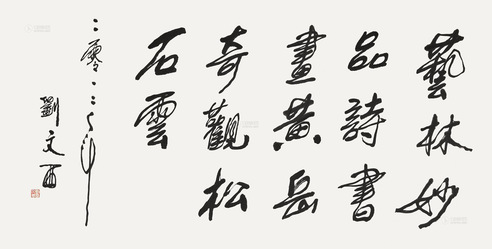 藝林妙
品詩書
畫黄岳
奇觀松
石雲
二零一二年
劉文西